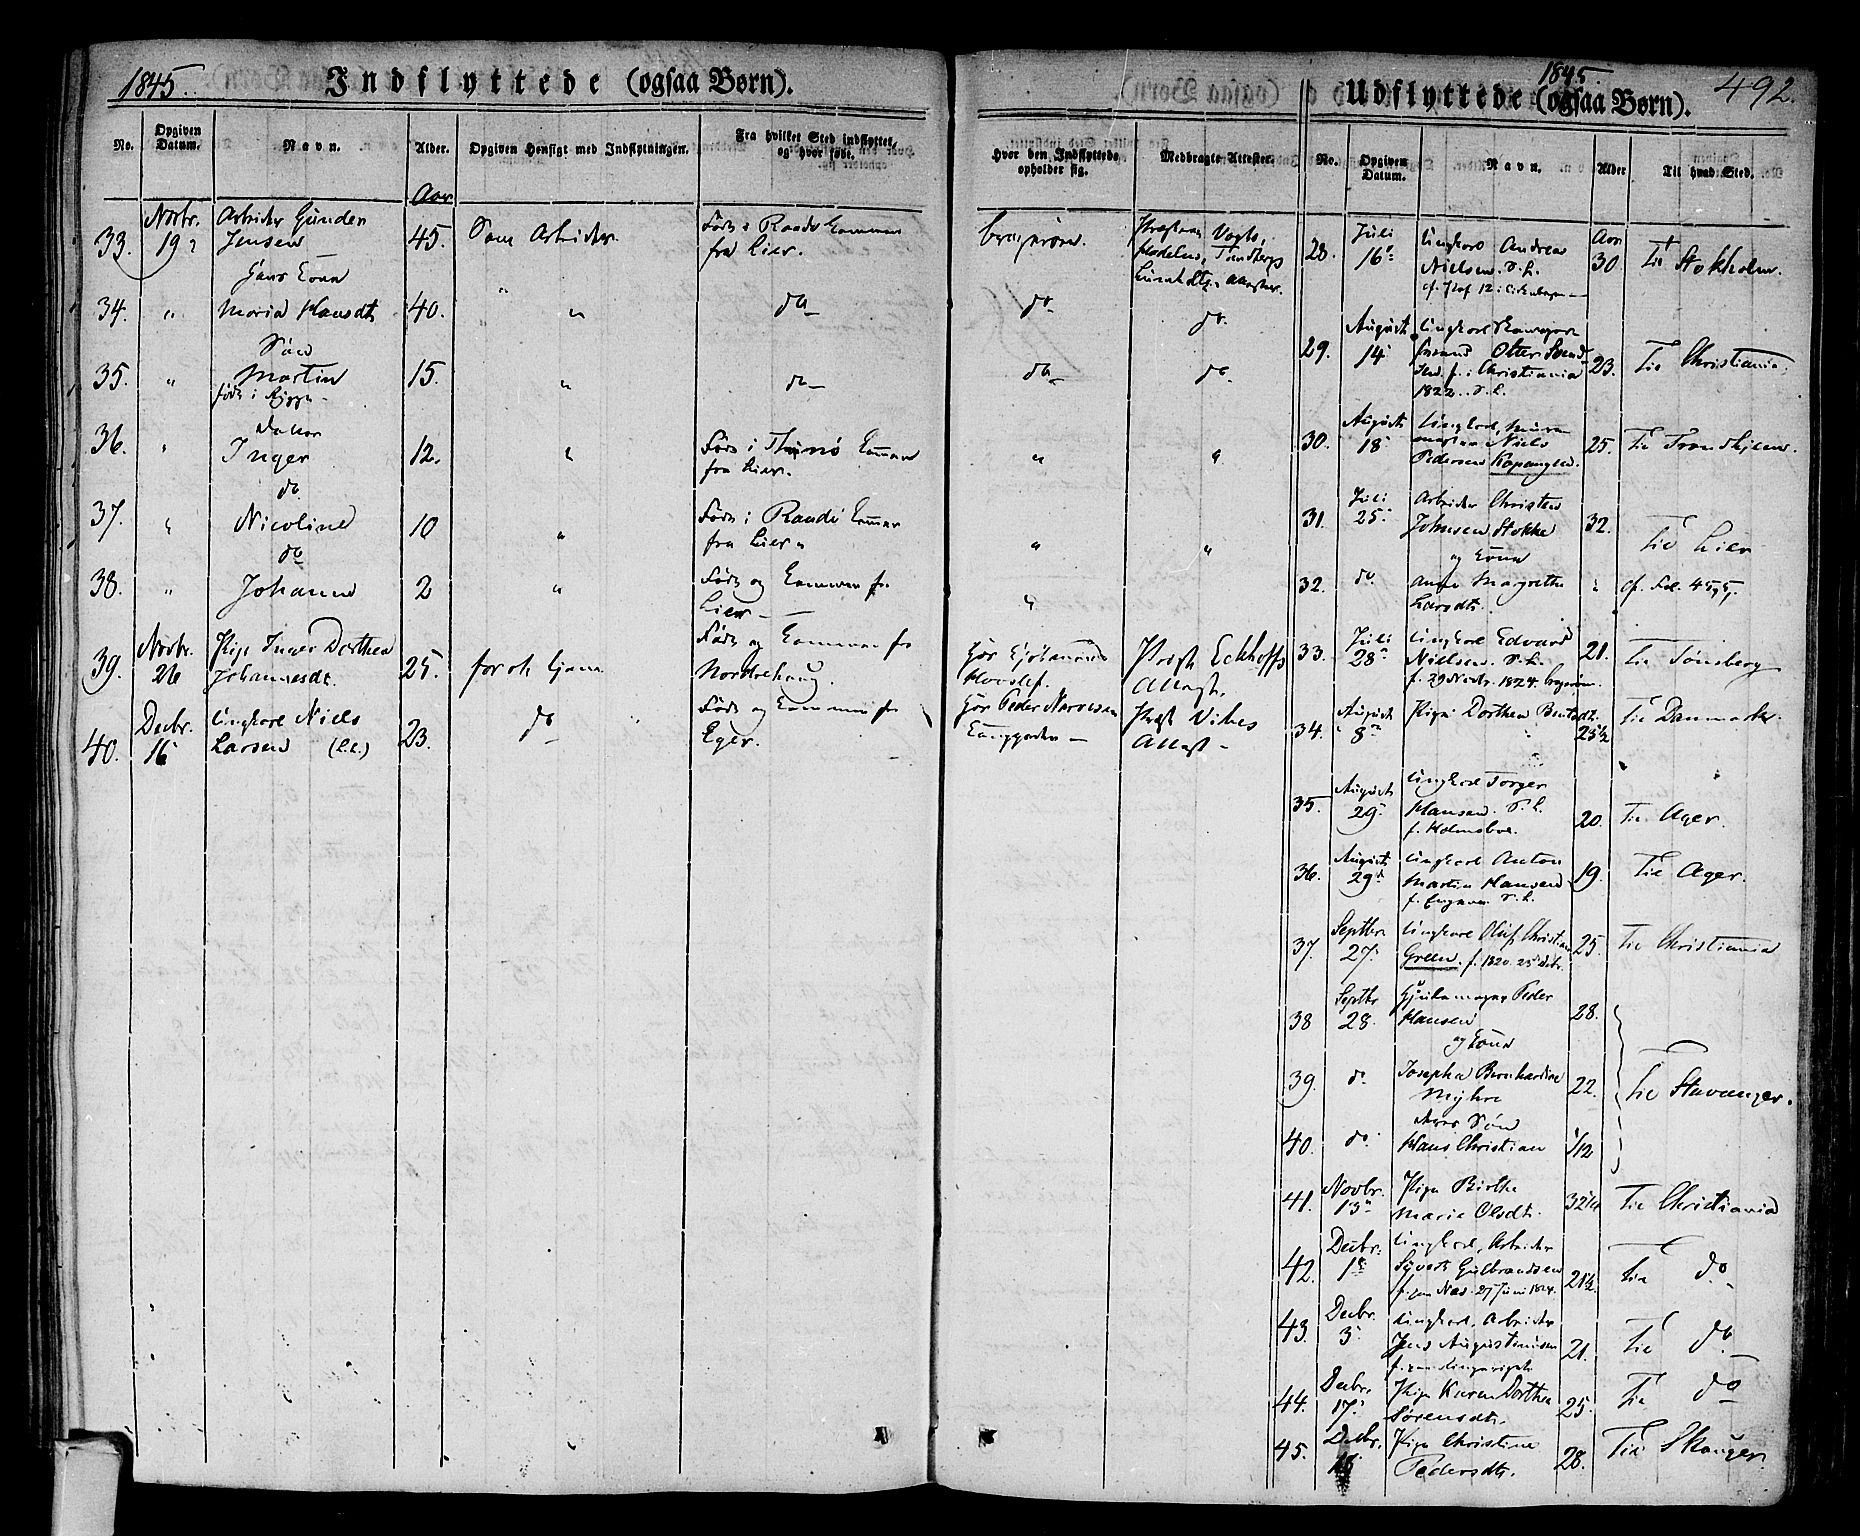 1845.
Indflyttede (ogsaa Børn).
No.
Opgiven Datum.
Navn.
Alder.
Opgiven Hensigt med Indflytningen.
Fra hvilket Sted indflyttet, og hvor født.
Aar
33. Novbr. 19 Arbeider Gunder Jensen 45. Som Arbeider. Født i Raade kommer fra Lier.
Hans Kone
34. " Maria Hansdt. 40. " do
Søn
35. " Martin 15. " do
født i Rygge
Datter
36. " Inger 12. " Født i Thurø kommer fra Lier.
do
37. " Nicoline 10 " Født i Raade kommer fra Lier
do
38. " Johanne 2 " Født og kommen fr. Lier
39. Novbr. 26 Pige Inger Dorthea Johannesdt. 25. for at tjene Født og kommen fr Norderhaug.
40. Decbr. 16 Ungkarl Niels Larsen 23. do Født og kommen fr Eger.
Udflyttede (ogsaa Børn).
1845.
492.
Hvor den Indflyttede opholder sig.
Medbragte Attester.
No.
Opgiven Datum.
Navn.
Alder
Til hvad Sted.
Pastorerne Vogts,
do do
do do
" "
" "
"
Præst Eckhoffs Attest.
Hos Peder Narvesen Præst Vibes Attest
28. Juli 16 Ungkarl Andreas Nielsen. S. L. Aar 30 Til Stokholm.
29. August 14 Ungkarl Otter Svendsen f. i Christiania 1822. S. L. 23. Til Christiania.
30. August 18 Ungkarl, Niels Pedersen Kapangen. 25. Til Trondhjem.
31. Juli 25 Arbeider Christen Johnsen Stokke 32. Til Lier
og Kone
32. do. Anne Margrethe Larsdt. " cf. Fol. 455,
33. Juli 28 Ungkarl Edvard Nielsen. S. L. 21. Til Tønsberg
34. August 8 Pige Dorthea Berntsdt. 25½ Til Danmark.
35. August 29 Ungkarl Torger Hansen. S. L. f. Holmsboe. 20. Til Ager.
36. August 29 Ungkarl Anton Martin Hansen S. L. 19. Til Ager.
37. Septbr 27. Ungkarl Oluf Christian Green. f. 1820. 25. Til Christiania
38 Septbr 28. Peder Hansen 28.
og Kone
39. do. Josepha Bernhardine Myhre 22. Til Stavanger.
deres Søn
40. do. Hans Christian 1/12
41. Novbr. 13 Pige Birthe Marie Olsdt. 32¼ Til Christiania
42. Decbr. 1 Ungkarl, Arbeider Syvert Gulbrandsen 27 Juni 1824. 21½ Til do
43. Decbr. 3 Ungkarl, Arbeider Jens Augustinusen 21. Til do
44. Decbr. 17 Pige Karen Dorthea Sørensdt. 25. Til do
45. Decbr. 18 Pige Christine Pedersdt. 28. Til Skouger